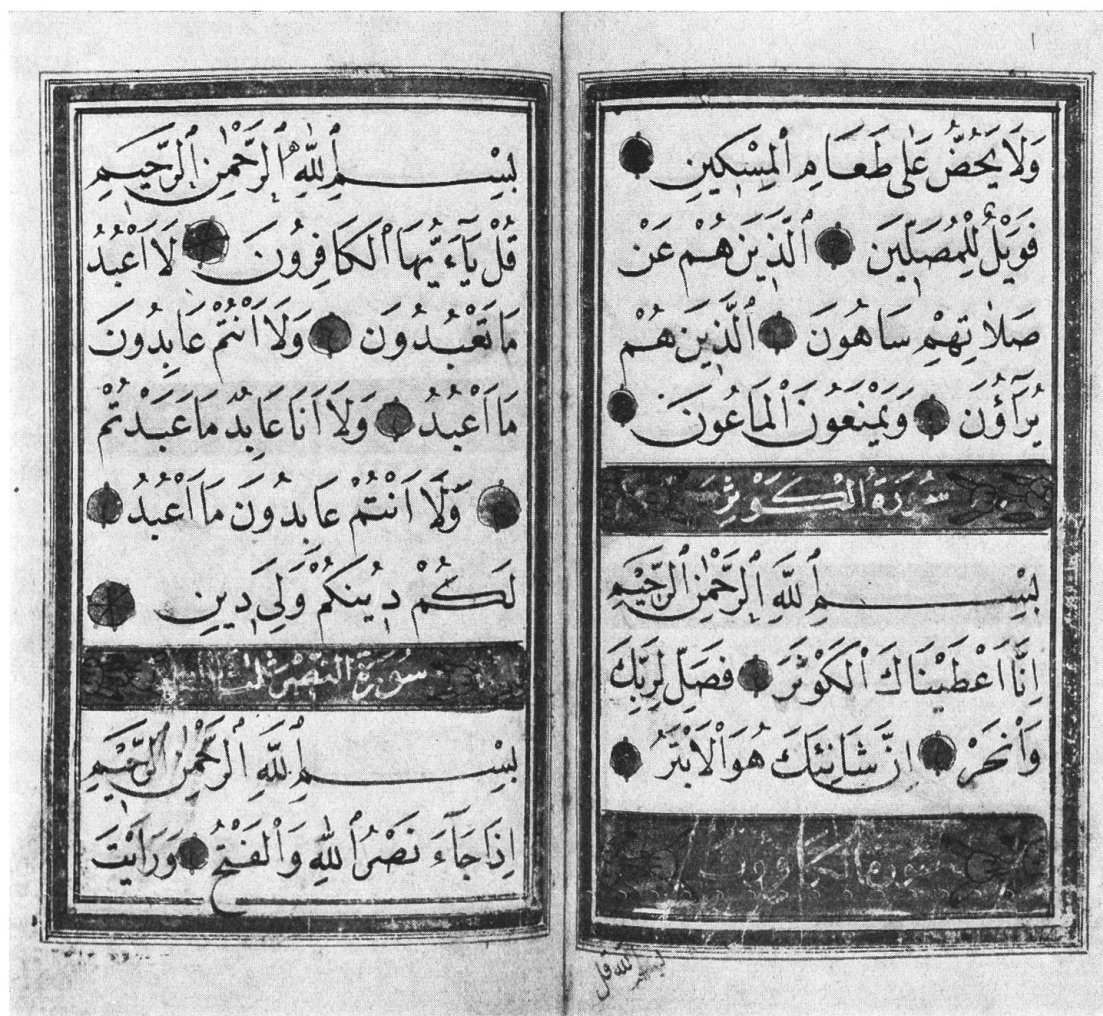 وَلَا يَحُضُّ عَلٰى طَعَامِ ٱلْمِسْكِينِ
فَوَيْلٌ لِلْمُصَلِّينَ ٱلَّذِينَ هُمْ عَنْ
صَلَاتِهِمْ سَاهُونَ ٱلَّذِينَ هُمْ
يُرَآؤُنَ وَيَمْنَعُونَ ٱلْمَاعُونَ
سُورَةُ الْكَوْثَرِ
بِسْمِ ٱللّٰهِ ٱلرَّحْمٰنِ ٱلرَّحِيمِ
اِنَّا اَعْطَيْنَاكَ ٱلْكَوْثَرَ فَصَلِّ لِرَبِّكَ
وَٱنْحَرْ اِنَّ شَانِئَكَ هُوَ ٱلْاَبْتَرُ
سورة الكافرون
بسم الله قل
بِسْمِ ٱللّٰهِ ٱلرَّحْمٰنِ ٱلرَّحِيمِ
قُلْ يَآءَيُّهَا ٱلْكَافِرُونَ لَا اَعْبُدُ
مَا تَعْبُدُونَ وَلَا اَنْتُمْ عَابِدُونَ
مَا اَعْبُدُ وَلَا اَنَا عَابِدٌ مَا عَبَدْتُمْ
وَلَا اَنْتُمْ عَابِدُونَ مَا اَعْبُدُ
لَكُمْ دِينُكُمْ وَلِيَ دِينِ
سُورَةُ النَّصْرِ ثلث
بِسْمِ ٱللّٰهِ ٱلرَّحْمٰنِ ٱلرَّحِيمِ
اِذَا جَآءَ نَصْرُ ٱللّٰهِ وَٱلْفَتْحُ وَرَاَيْتَ